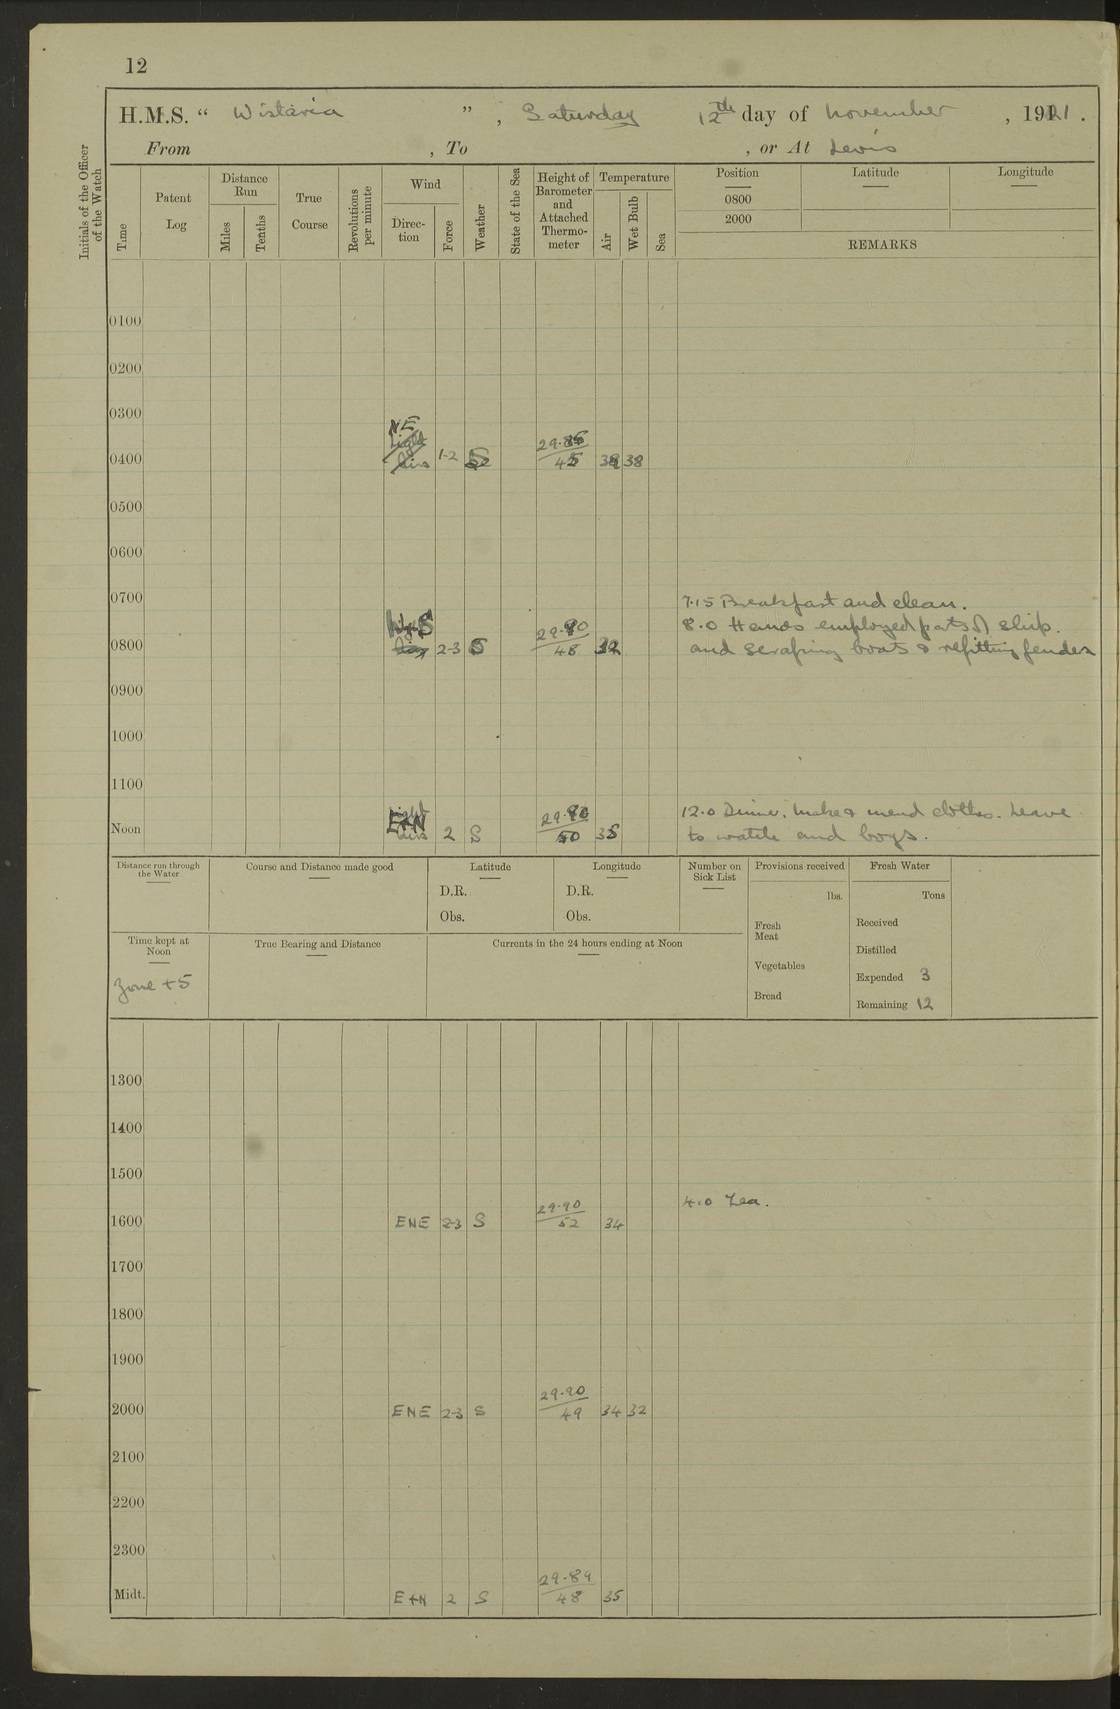 12
H.M.S. “ Wistaria ” , Saturday 12th day of November , 1921 .
From , To , or At Levis
Initials of the Officer of the Watch
Time
Patent Log
Distance Run
Miles
Tenths
True Course
Revolutions per minute
Wind
Direction
Force
Weather
State of the Sea
Height of Barometer and Attached Thermometer
Temperature
Air
Wet Bulb
Sea
Position Latitude Longitude
0800
2000
REMARKS
0100
0200
0300
NE
29.85
0400 1-2 45 38
0500
0600
0700 7.15 Breakfast and clean.
29.90 8.0 Hands employed parts of ship.
0800 2-3 S 48 32 and scraping boats & refitting fender
0900
1000
1100
E+N 29.90 12.0 Dinner. Make & mend clothes. Leave
Noon 2 S 50 35 to watch and boys.
Distance run through the Water
Course and Distance made good
Latitude
D.R.
Obs.
Longitude
D.R.
Obs.
Number on Sick List
Provisions received
lbs.
Fresh Meat
Vegetables
Bread
Fresh Water
Tons
Received
Distilled
Expended 3
Remaining 12
Time kept at Noon
Zone +5
True Bearing and Distance
Currents in the 24 hours ending at Noon
1300
1400
1500
29.90 4.0 Tea.
1600 ENE 2-3 S 52 34
1700
1800
1900
29.90
2000 ENE 2-3 S 49 34 32
2100
2200
2300
29.89
Midt. E+N 2 S 48 35